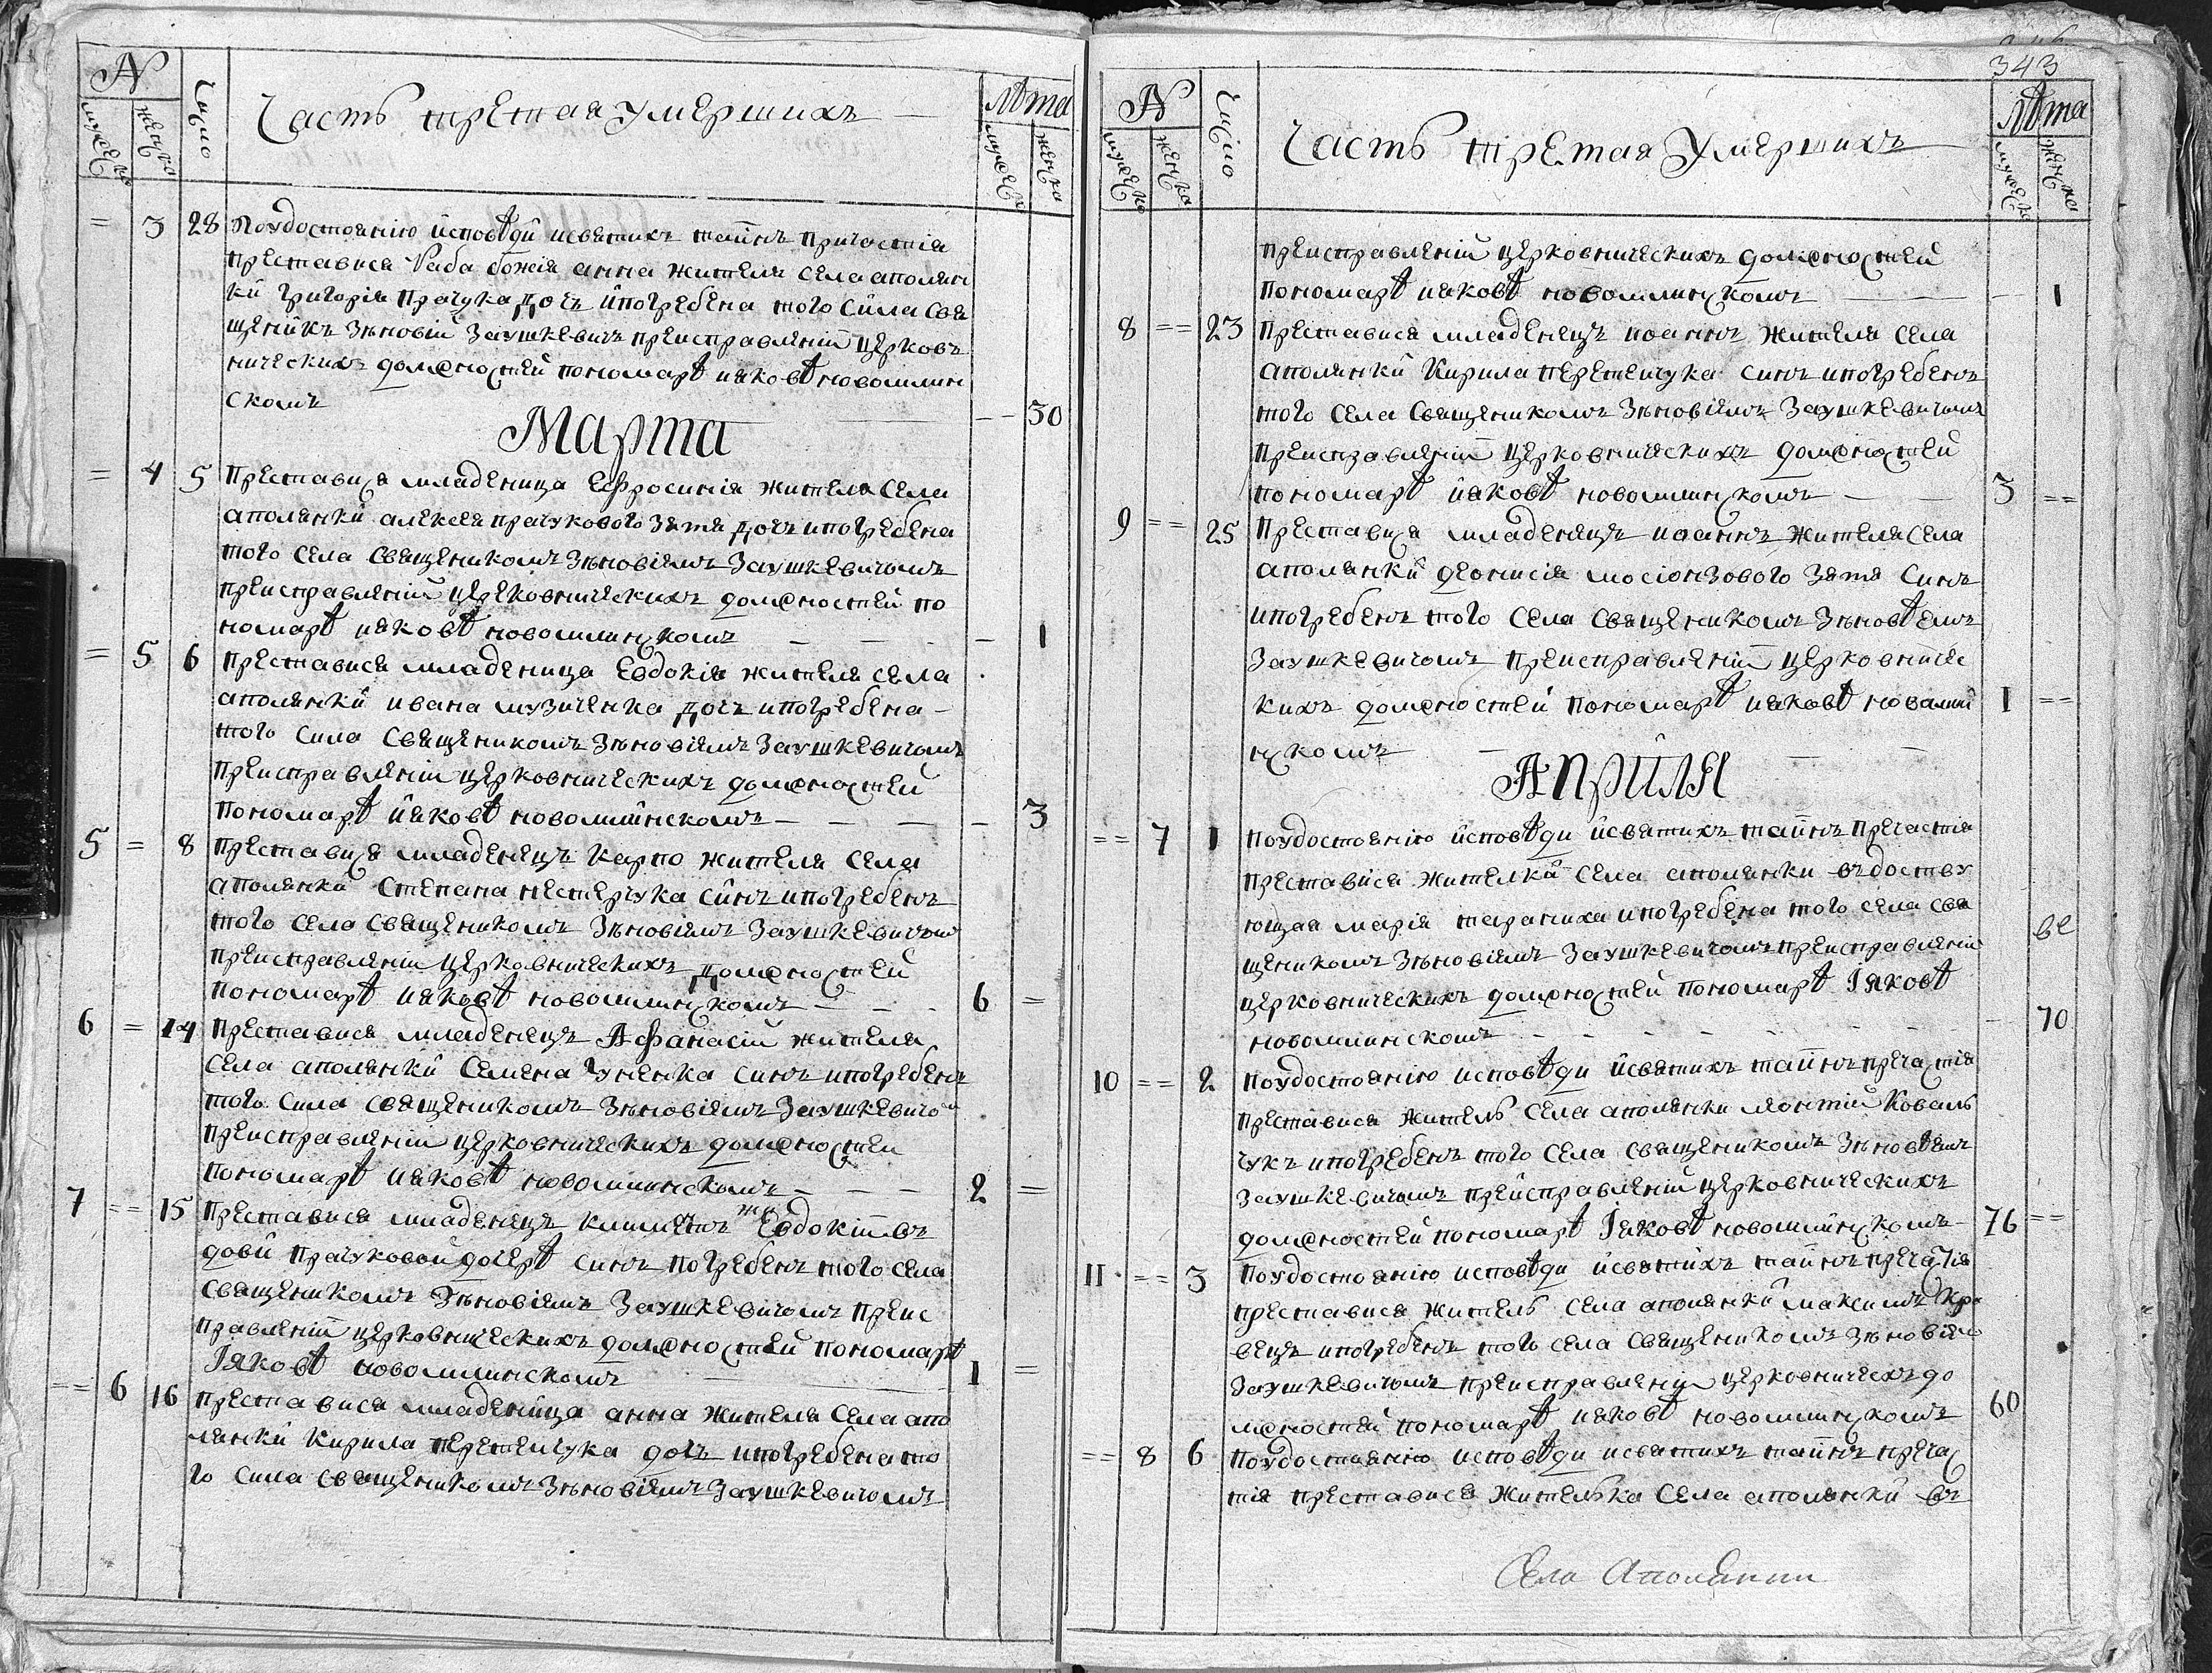 №
мужеска
женска
Число
Часть третая Умершихъ
Лѣта
мужеска
женска
= 3 28 Поудостоянію исповѣди исвятихъ таинъ Причастія
преставися Раба божія анна жителя села аполян
ки григорія Прачука дочъ ипогребена того села Свя
щеникъ Зѣновій Заушкевичъ преисправленіи церковъ
ническихъ должностей пономарѣ иаковѣ новомлин
скомъ - - 30
Марта
= 4 5 Преставися младеница Ефросинія жителя Села
аполянки алексея прачукового Зятя дочъ ипогребена
того села Священикомъ Зѣновіямъ Заушкевичомъ
преисправленіи церковническихъ должностей по
номарѣ иаковѣ новомлинскомъ - 1
= 5 6 преставися младеница Евдокія жителя села
аполянки ивана музиченка дочъ ипогребена
того сила Священикомъ Зѣновіямъ Заушкевичомъ
преисправленіи церковническихъ должностей
пономарѣ иаковѣ новомлинскомъ - 3
5 = 8 преставися младенецъ карпо жителя села
аполянки Степана нестерчука синъ ипогребенъ
того села Священикомъ Зѣновіямъ Заушкевичом
преисправленіи церковническихъ должностей
пономарѣ иаковѣ новомлинскомъ 6 =
6 = 14 преставися младенецъ Афанасій жителя
села аполянки Семена Чуненка синъ ипогребенъ
того сила священикомъ Зѣновіямъ Заушкевичом
преисправленіи церковническихъ должностей
пономарѣ иаковѣ новомлинскомъ 2 =
7 == 15 Преставися младенецъ климентъ Евдокіи въ
дови прачуковой дочерѣ синъ погребенъ того села
Священикомъ Зѣновіямъ Заушкевичомъ преис
правленіи церковническихъ должностей пономарѣ
Іяковѣ новомлинскомъ 1 =
== 6 16 преставися младеница анна жителя Села апо
лянки Кирила перетечука дочъ ипогребена то
го сила священикомъ Зѣновіямъ Заушкевичомъ
343
№
мужеска
женска
Число
Часть третая Умершихъ
Лѣта
мужеска
женска
преисправленіи церковническихъ должностей
пономарѣ иаковѣ новомлинскомъ - 1
8 == 23 Преставися младенецъ иоаннъ жителя села
аполянки Кирила перетечука синъ ипогребенъ
того села Священикомъ Зѣновіямъ Заушкевичомъ
преисправленіи церковническихъ должностей
пономарѣ иаковѣ новомлинскомъ 3 ==
9 == 25 Преставися младенецъ иоаннъ жителя Села
аполянки деонисія мосіонзового Зятя Синъ
ипогребенъ того села священикомъ Зѣновѣемъ
Заушкевичомъ преисправленіи церковничес
кихъ должностей пономарѣ иаковѣ новомли 1 ==
нскомъ
Априля
== 7 1 Поудостоянію исповѣди исвятихъ таинъ Пречастія
преставися жителки села аполянки въдоству
ющая марія тараниха ипогребена того села свя
щеникомъ Зѣновіямъ Заушкевичомъ преисправленіи
церковническихъ должностей пономарѣ Іяковѣ
новомлинскомъ 70
10 == 2 поудостоянію исповѣди исвятихъ таинъ пречастія
преставися житель села аполянки леонтій Коваль
чукъ ипогребенъ того села священикомъ Зѣновѣямъ
Заушкевичомъ преисправленіи церковническихъ
должностей пономарѣ Іяковѣ новомлинскомъ 76 ==
11 == 3 поудостоянію исповѣди исвятихъ таинъ пречастія
преставися житель села аполянки максимъ кра
вецъ ипогребенъ того села священикомъ Зѣновіям
Заушкевичомъ преисправленіи церковническъ до
лжностей пономарѣ иаковѣ новомлинскомъ 60
== 8 6 поудостоянію исповѣди исвятихъ таинъ пречас
тія преставися жителька села аполянки въ
Села Аполянки